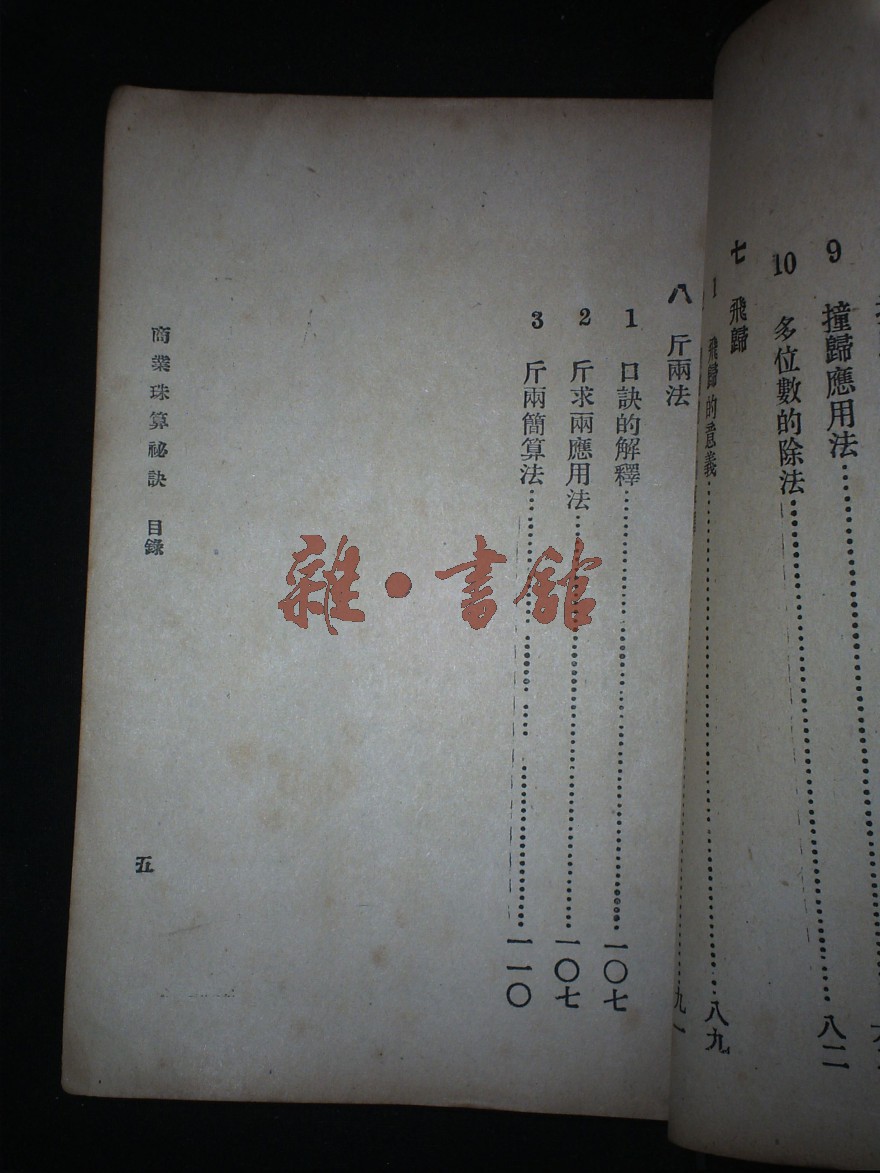 9 撞歸應用法
八二
10 多位數的除法
七 飛歸
1 飛歸的意義 八九
九一
八 斤兩法
1 口訣的解釋 一〇七
2 斤求兩應用法 一〇七
3 斤兩簡算法 一一〇
商業珠算祕訣 目錄
五
雜·書館